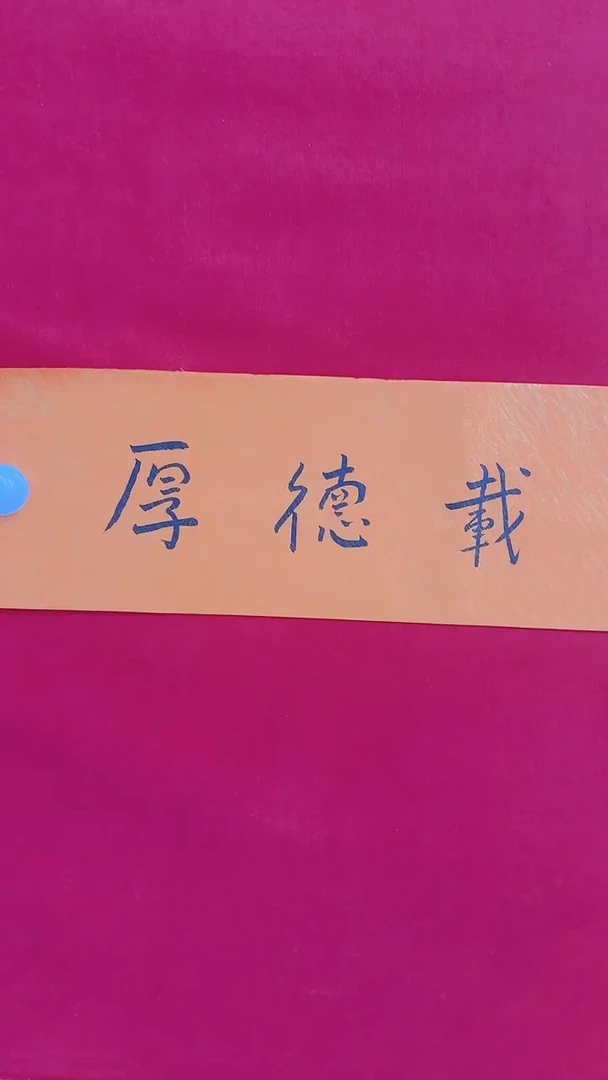 厚德載